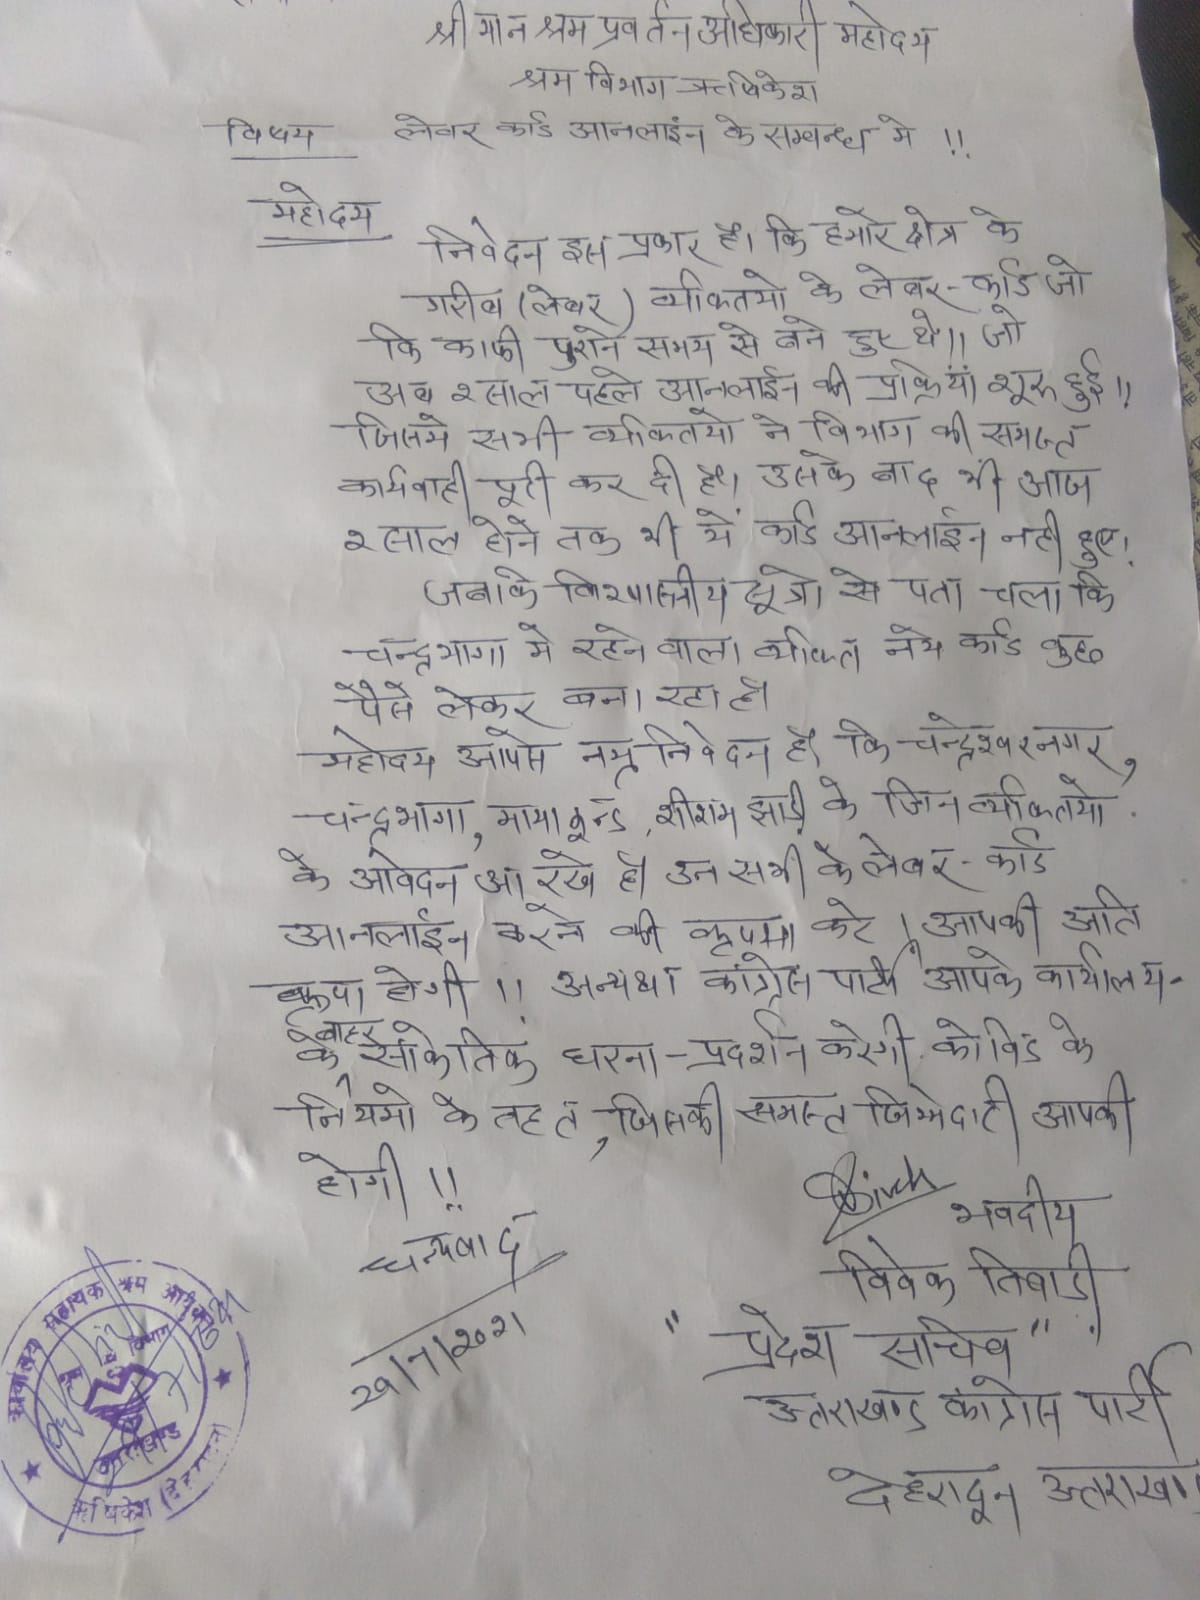 श्रीमान श्रम प्रवर्तन अधिकारी महोदय
श्रम विभाग ऋषिकेश
विषय लेबर कार्ड आनलाइन के सम्बन्ध मे !!
महोदय
निवेदन इस प्रकार है। कि हमारे क्षेत्र के
गरीब (लेबर) व्यक्तियो के लेबर-कार्ड जो
कि काफी पुराने समय से बने हुए थे।। जो
अब २ साल पहले आनलाईन की प्रक्रिया शुरू हुई !!
जिसमे सभी व्यक्तियो ने विभाग की समस्त
कार्यवाही पूरी कर दी है। उसके बाद भी आज
२ साल होने तक भी ये कार्ड आनलाईन नही हुए!
जबकि विश्वासनीय सूत्रो से पता चला कि
चन्द्रभागा मे रहने वाला व्यक्ति नये कार्ड कुछ
पैसे लेकर बना रहा है।
महोदय आपसे नम्र निवेदन है कि चन्द्रेश्वर नगर,
चन्द्रभागा, मायाकुन्ड, शीशम झाड़ी के जिन व्यक्तियो
के आवेदन आ रखे है। उन सभी के लेबर-कार्ड
आनलाईन करने की कृपया करे ! आपकी अति
कृपा होगी !! अन्यथा कांग्रेस पार्टी आपके कार्यालय-
के बाहर सांकेतिक धरना-प्रदर्शन करेगी कोविड के
नियमो के तहत, जिसकी समस्त जिम्मेदारी आपकी
होगी !!
धन्यवाद
भवदीय
विवेक तिवाड़ी
"प्रदेश सचिव"
२९/7/२०२१
उत्तराखण्ड कांग्रेस पार्टी
देहरादून उत्तराखण
कार्यालय सहायक श्रम आयुक्त
विभाग
उत्तराखण्ड
ऋषिकेश (देहरादून)